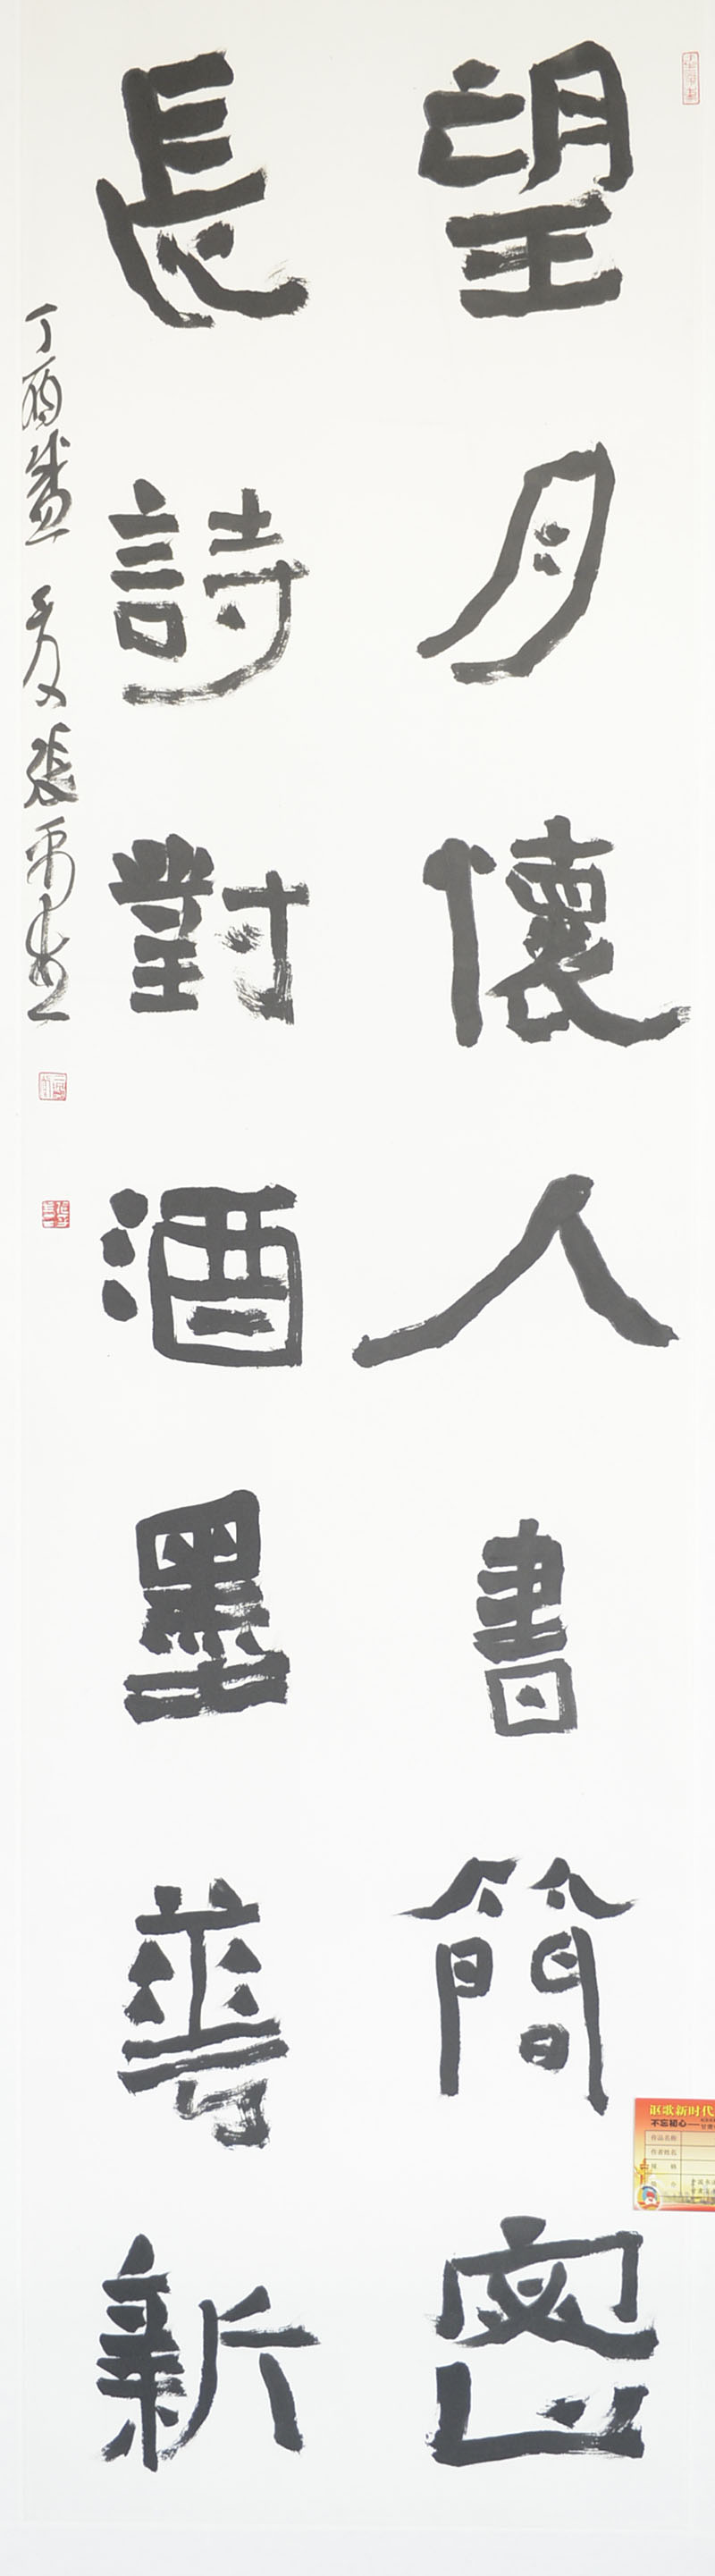 望月懷人書簡密
長詩對酒墨華新
丁酉盛夏張禹書
讴歌新时代
不忘初心——
作品名称
作者姓名
规 格